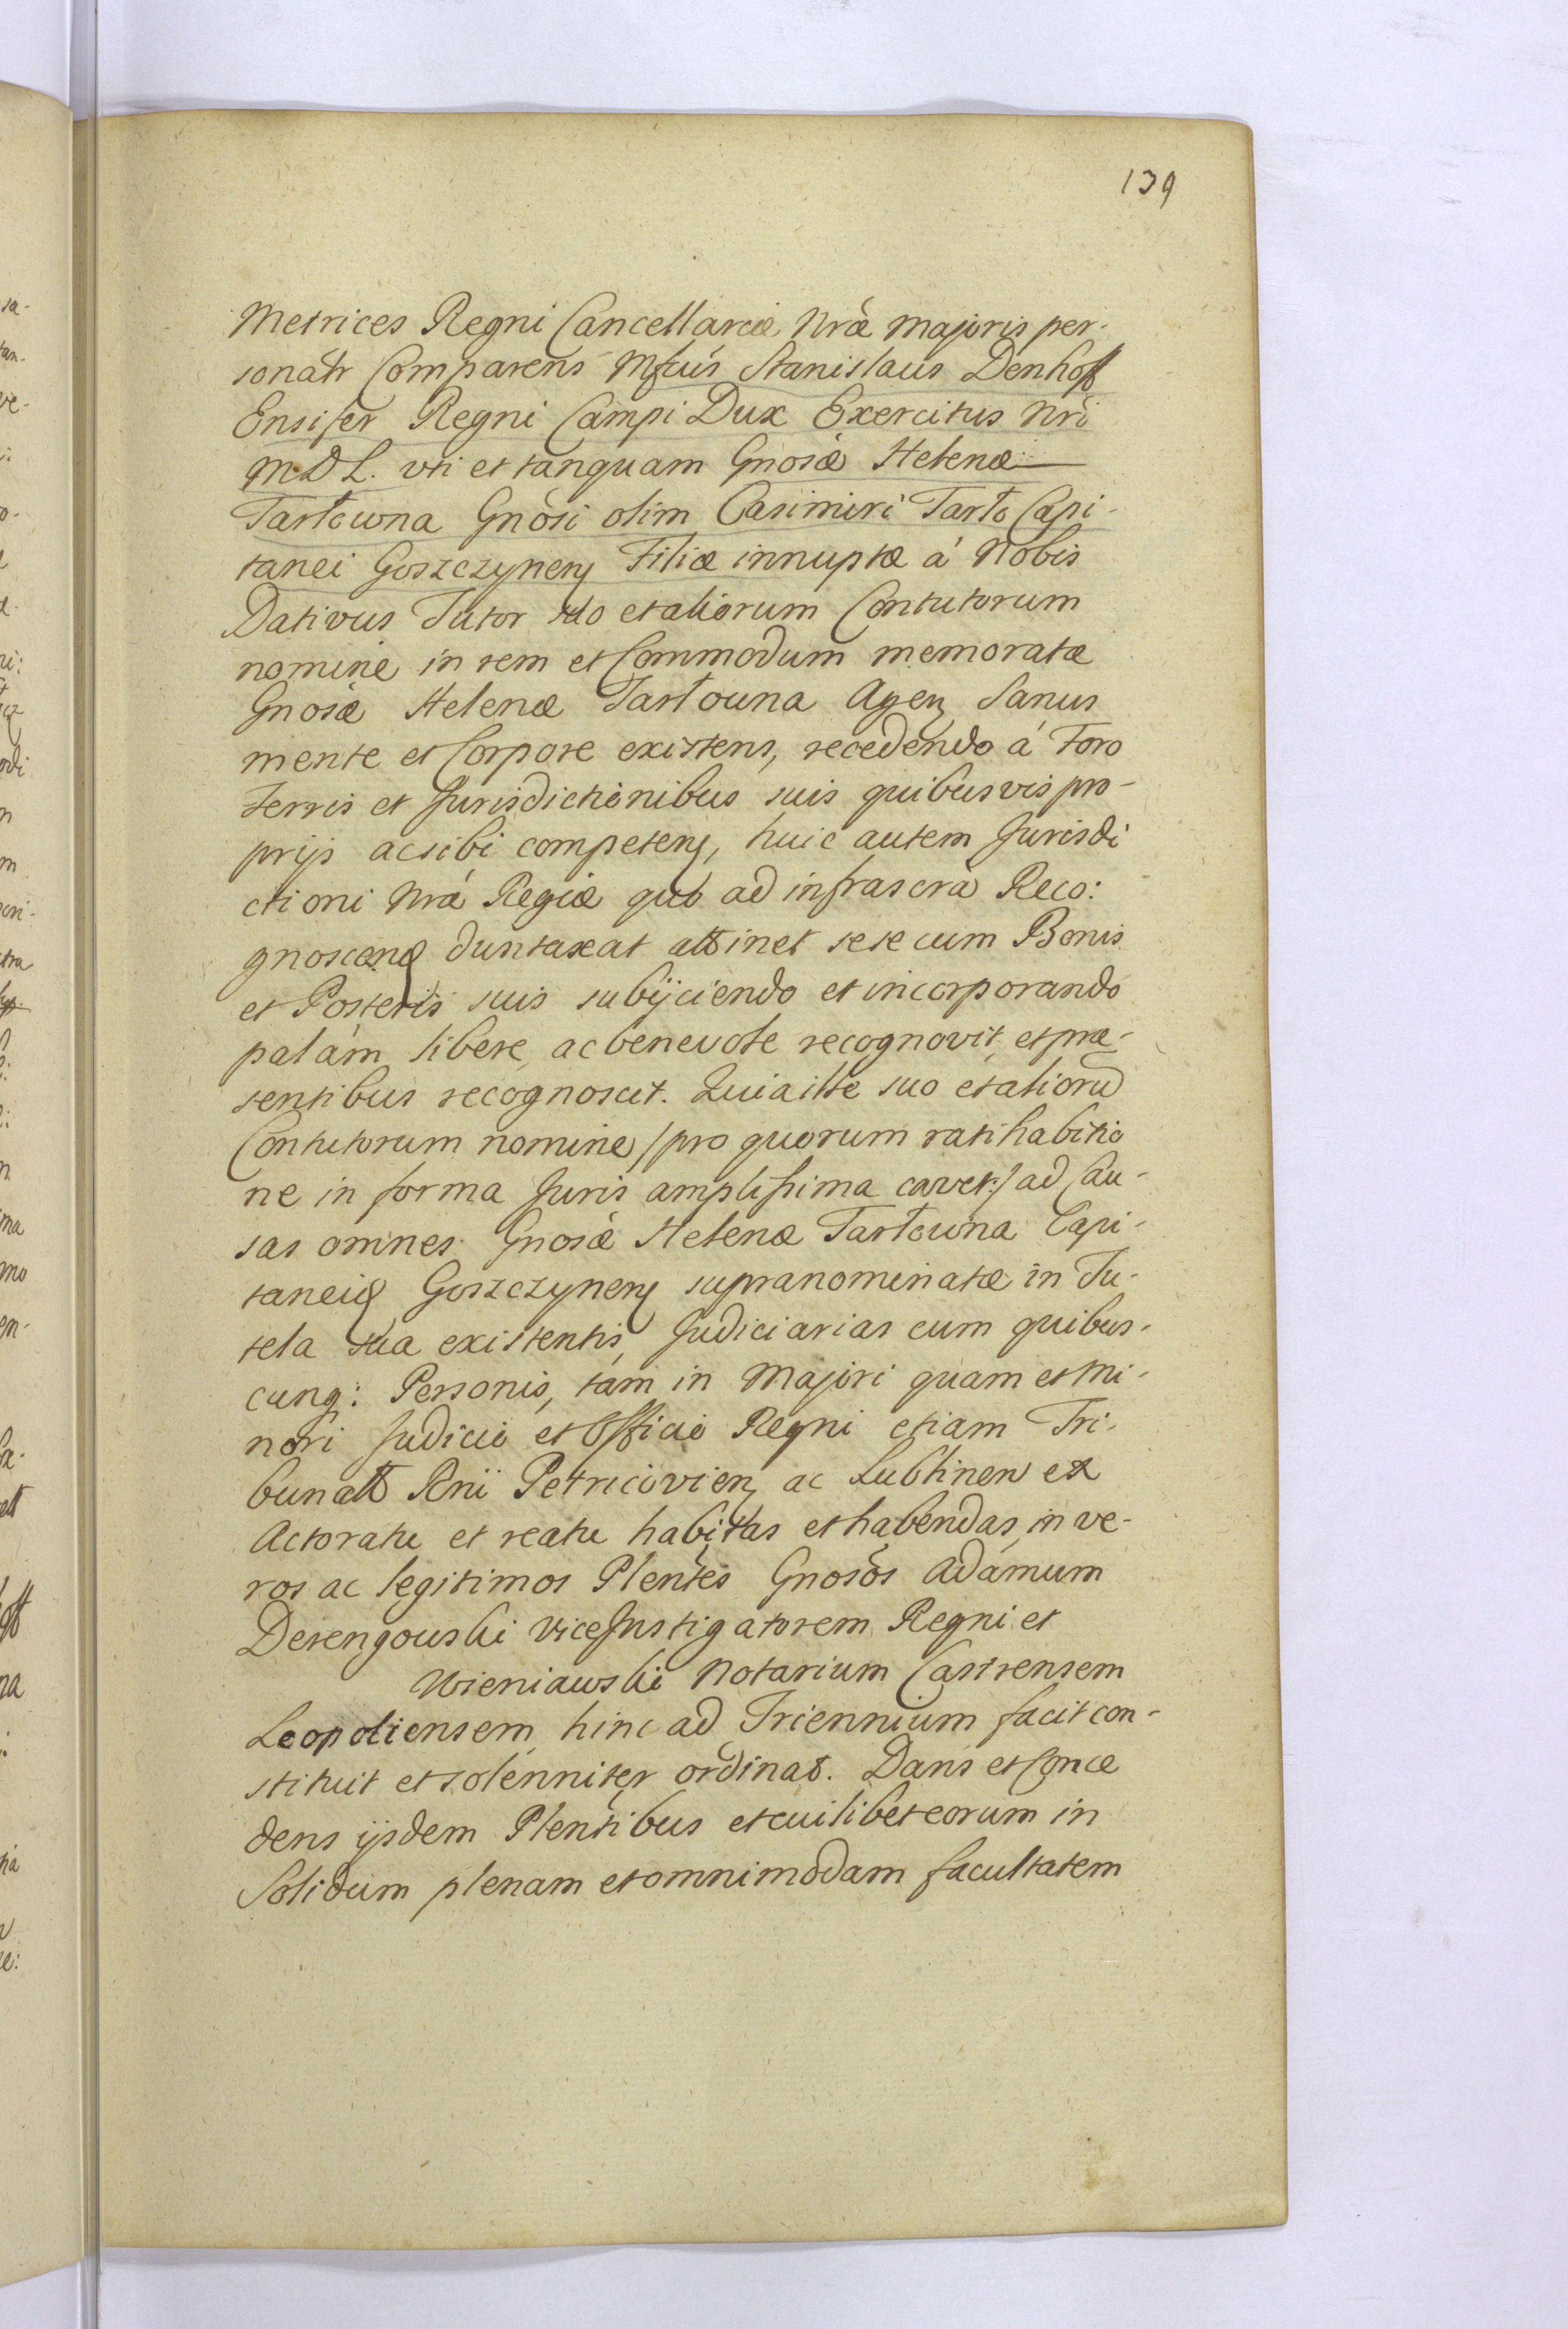 139
Metrices Regni Cancellariæ Nræ Majoris per-
sonatr Comparens Mfcus Stanislaus Denhoff
Ensifer Regni Campi Dux Exercitus Nri
M.D.L. uti et tanquam Gnosæ Helenæ
Tarłowna Gnosi olim Casimiri Tarło Capi-
tanei Goszczynen Filiæ innuptæ á Nobis
Dativus Tutor suo et aliorum Contutorum
nomine in rem et Commodum memoratæ
Gnosæ Helenæ Tarłowna Agen Sanus
mente et Corpore existens, recedendo á Foro
Terris et Jurisdictionibus suis quibusvis pro-
prijs ac sibi competen, huic autem Jurisdi
ctioni Nræ Regiæ quo ad infrascra Reco:
gnoscen duntaxat attinet sese cum Bonis
et Posteris suis subijciendo et incorporando
palám libere, ac benevole recognovit, et præ-
sentibus recognoscit. Quia ille suo et aliorũ
Contutorum nomine /pro quorum ratihabitio
ne in forma Juris amplissima cavet:/ ad Cau-
sas omnes Gnosæ Helenæ Tarłowna Capi-
taneid Goszczynen supranominatæ in Tu-
tela sua existentis, Judiciarias cum quibus-
cunq: Personis, tam in Majori quam et Mi-
nori Judicio et Officio Regni etiam Tri-
bunall Rnii Petricovien ac Lublinen ex
Actoratu et reatu habitas et habendas in ve-
ros ac legitimos Plentes Gnosos Adamum
Derengowski ViceInstigatorem Regni et
Wieniawski Notarium Castrensem
Leopoliensem hinc ad Triennium facit con-
stituit et solenniter ordinat. Dans et Conce
dens ijsdem Plentibus et cuilibet eorum in
Solidum plenam et omnimodam facultatem